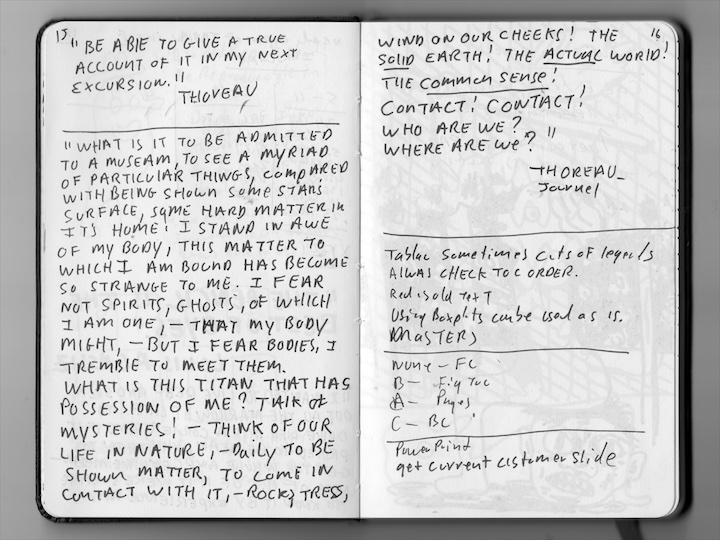 15
"BE ABLE TO GIVE A TRUE
ACCOUNT OF IT IN MY NEXT
EXCURSION."
THOREAU
"WHAT IS IT TO BE ADMITTED
TO A MUSEAM, TO SEE A MYRIAD
OF PARTICULAR THINGS, COMPARED
WITH BEING SHOWN SOME STAR'S
SURFACE, SOME HARD MATTER IN
ITS HOME! I STAND IN AWE
OF MY BODY, THIS MATTER TO
WHICH I AM BOUND HAS BECOME
SO STRANGE TO ME. I FEAR
NOT SPIRITS, GHOSTS, OF WHICH
I AM ONE, – THAT MY BODY
MIGHT, – BUT I FEAR BODIES, I
TREMBLE TO MEET THEM.
WHAT IS THIS TITAN THAT HAS
POSSESSION OF ME? TALK OF
MYSTERIES! – THINK OF OUR
LIFE IN NATURE, – DAILY TO BE
SHOWN MATTER, TO COME IN
CONTACT WITH IT, – ROCKS, TRESS,
16
WIND ON OUR CHEEKS! THE
SOLID EARTH! THE ACTUAL WORLD!
THE COMMON SENSE!
CONTACT! CONTACT!
WHO ARE WE?
WHERE ARE WE?"
THOREAU_
Journel
Tablac Sometimes cuts of legends
Always CHECK TOC ORDER.
Red is old TEXT
Using Boxplots can be used as is.
MASTERS
None – FC
B – Fig TOC
A – Pages
C – BC
PowerPoint
get current customer slide